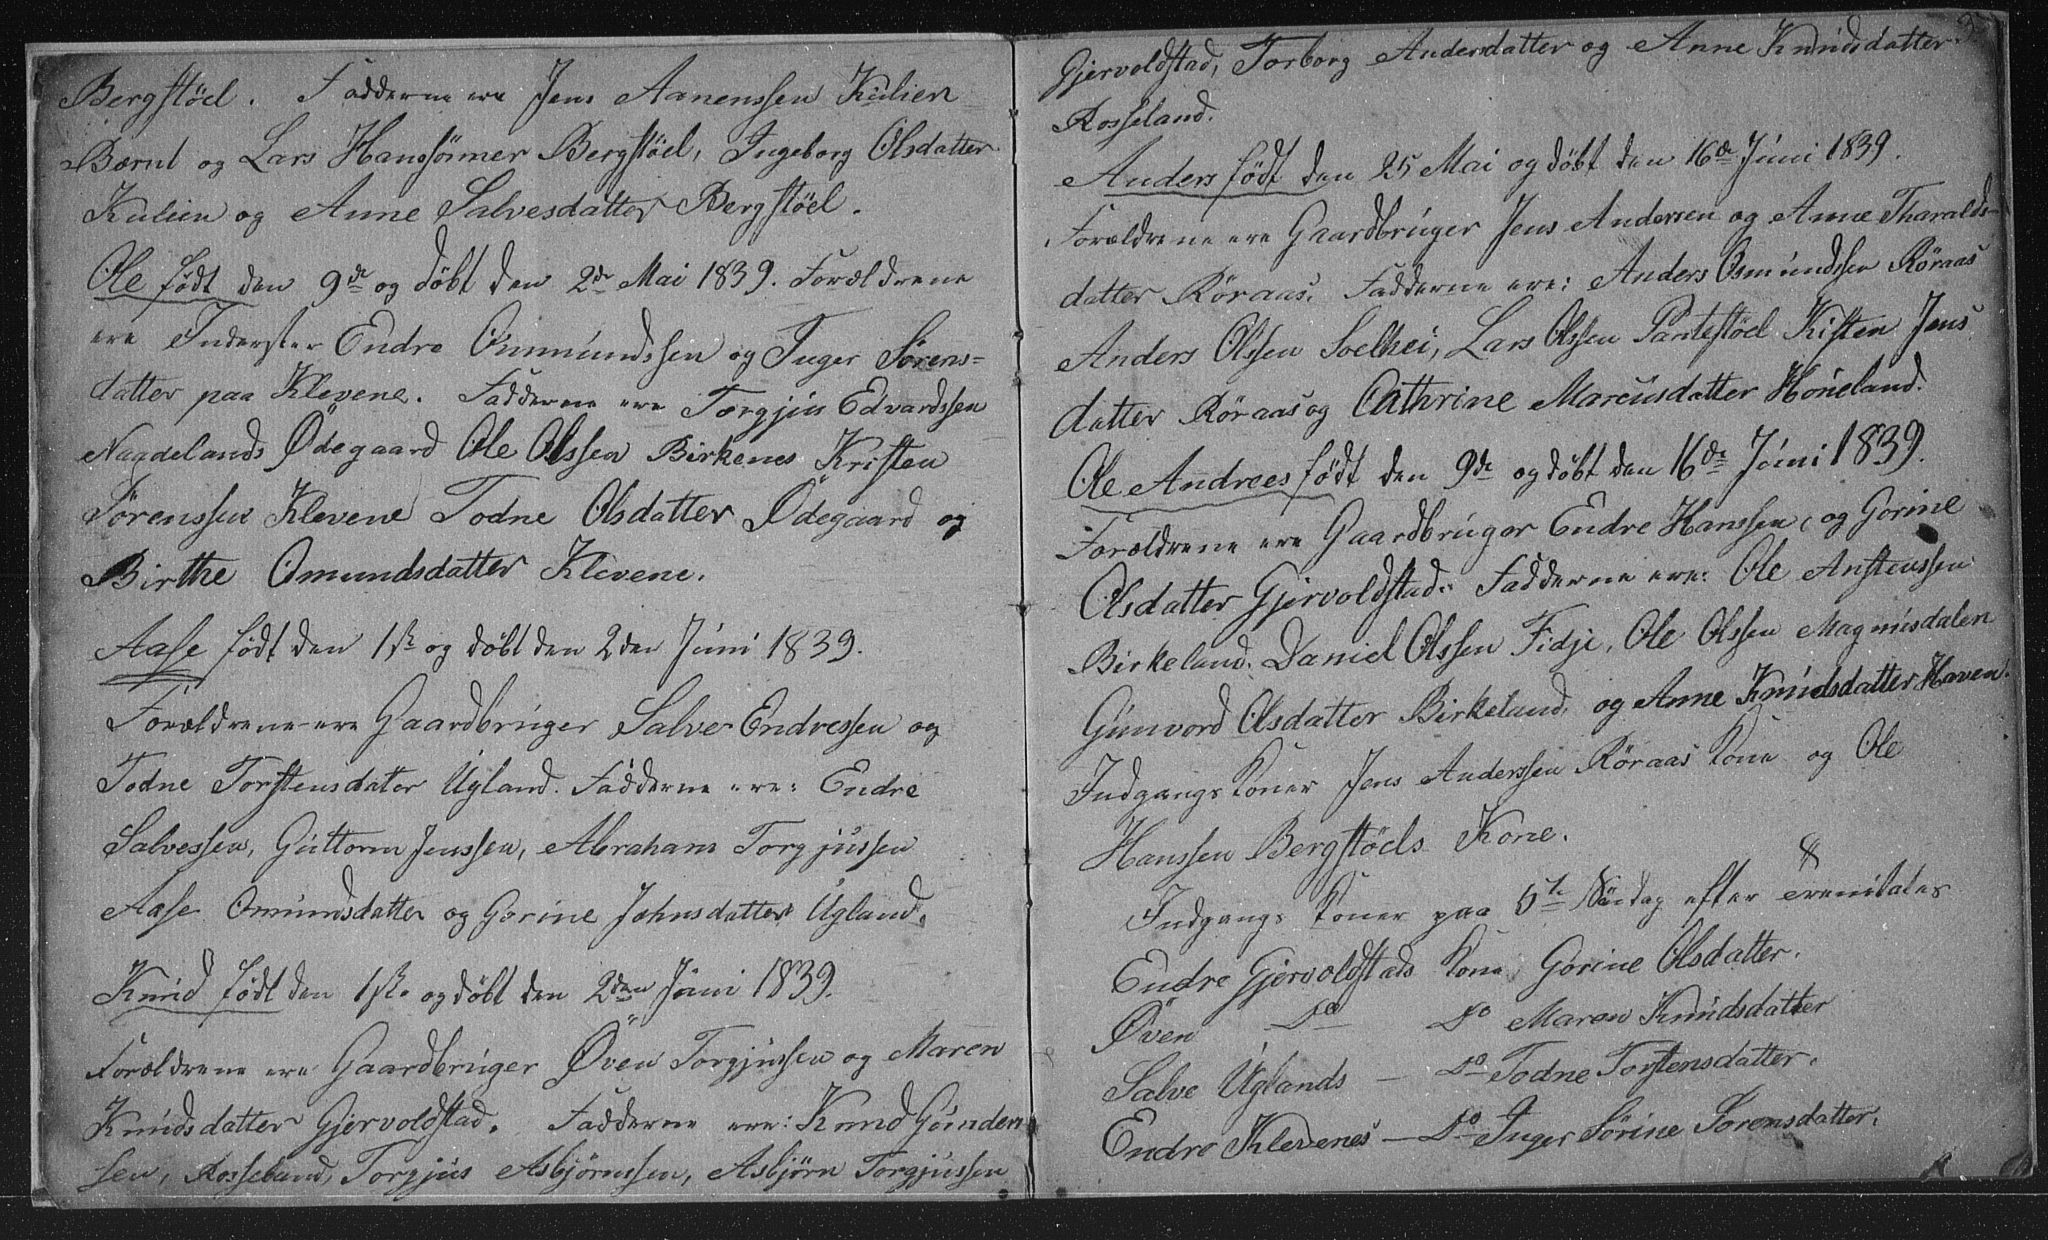 Bergstöel. Fadderne ere Jens Aanenssen Kulien
Bærnt og Lars Hanssönner Bergstöel, Ingeborg Olsdatter
Kulien og Anne Salvesdatter Bergstöel.
Ole født den 9de og døbt den 2de Mai 1839. Forældrene
ere Inderster Endre Ommundssen og Inger Sørens=
datter paa Klevene. Fadderne ere Torgjus Edvardssen
Naadelands Ødegaard Ole Olssen Birkenes Kristen
Sørenssen Klevene Todne Olsdatter Ødegaard og
Birthe Omundsdatter Klevene.
Aase født den 1ste og døbt den 2den Juni 1839.
Forældrene ere Gaardbruger Salve Endressen og
Todne Torstensdater Ugland. Fadderne ere: Endre
Salvessen, Guttorm Jenssen, Abraham Torgjussen
Aase Omundsdatter og Gorine Johnsdatter Ugland.
Knud født den 1ste og døbt den 2den Juni 1839.
Forældrene ere Gaardbruger Øven Torgjussen og Maren
Knudsdatter Gjervoldstad. Fadderne ere: Knud Gunden
sen, Rosseland, Torgjus Asbjörnssen, Asbjörn Torgjussen
Gjervoldstad, Torborg Andersdatter og Anne Knudsdatter
Rosseland.
Anders født den 25 Mai og døbt den 16de Juni 1839.
Forældrene ere Gaardbruger Jens Andersen og Anne Tharalds-
datter Röraas. Fadderne ere: Anders Osmundssen Röraas
Anders Olssen Soelhei, Lars Olssen Pantestöel Kisten Jens
datter Röraas og Cathrine Marcusdatter Höneland.
Ole Andrees født den 9de og døbt den 16de Juni 1839.
Forældrene ere Gaardbruger Endre Hanssen, og Gorine
Olsdatter Gjervoldstad. Fadderne ere: Ole Anstenssen
Birkeland. Daniel Olssen Fidje, Ole Olssen Magnusdalen
Gunvord Olsdatter Birkeland, og Anne Knudsdatter Haven.
Indgangs Koner Jens Anderssen Röraas Kone og Ole
Hanssen Bergstöels Kone.
Indgangs Koner paa 5te Söndag efter Trenitates
Endre Gjervoldstads Kone Gorine Olsdatter.
Øven Do Do Maren Knudsdatter
Salve Uglands — Do Todne Torstensdatter.
Endre Klevenes — Do Inger Sörine Sorensdatter.